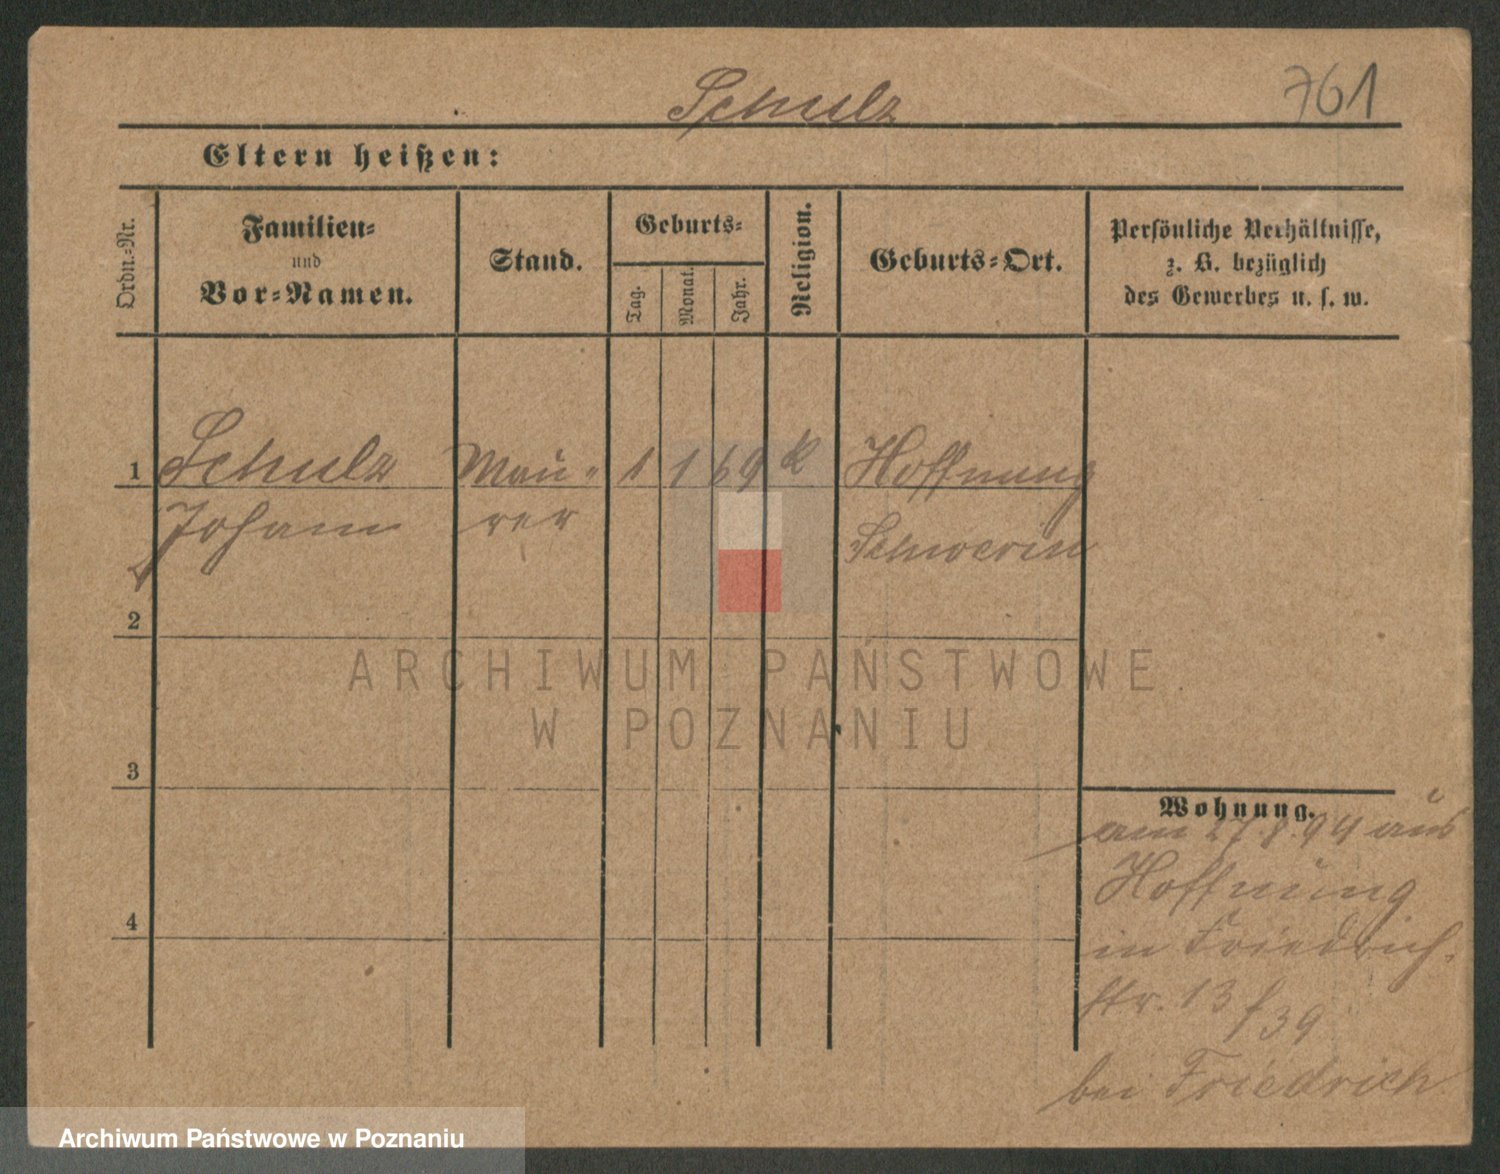 Schulz
761
Eltern heißen:
Ordn.-Nr.
Familien-
und
Vor-Namen.
Stand.
Geburts-
Tag.
Monat.
Jahr.
Religion.
Geburts-Ort.
Persönliche Verhältnisse,
z. B. bezüglich
des Gewerbes u. s. w.
1 Schulz Mau- 1 1 69 k Hoffnung
Johann rer Schwerin
2
3
4
Wohnung.
am 27 8 94 aus
Hoffnung
in Friedrich-
str. 13 / 39
bei Friedrich
ARCHIWUM PAŃSTWOWE
W POZNANIU
Archiwum Państwowe w Poznaniu